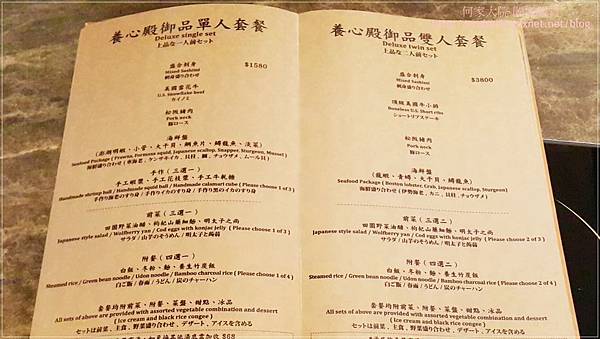 養心殿御品單人套餐
Deluxe single set
上品な一人前セット
盛合刺身
Mixed Sashimi
刺身盛り合わせ
$1580
美國雪花牛
U.S. Snowflake beef
カイノミ
松阪豬肉
Pork neck
豚ロース
海鮮盤
(澎湖明蝦、小管、大干貝、鯛魚片、鱘龍魚、淡菜)
Seafood Package ( Prawns, Formosa squid, Japanese scallop, Snapper, Sturgeon, Mussel )
手作 (三選一)
手工蝦漿、手工花枝漿、手工牛軋糖
Handmade shrimp ball / Handmade squid ball / Handmade calamari cube ( Please choose 1 of 3 )
前菜 (三選一)
田園野菜油醋、枸杞山藥細麵、明太子之尚
Japanese style salad / Wolfberry yan / Cod eggs with konjac jelly ( Please choose 1 of 3 )
サラダ / 山芋のそうめん / 明太子と蒟蒻
附餐 (四選一)
白飯、冬粉、麵、養生竹炭飯
Steamed rice / Green bean noodle / Udon noodle / Bamboo charcoal rice ( Please choose 1 of 4 )
白ご飯 / 春雨 / うどん / 炭のチャーハン
套餐均附前菜、附餐、菜盤、甜點、冰品
All sets of above are provided with assorted vegetable combination and dessert
( Ice cream and black rice congee )
セットは前菜、主食、野菜盛り合わせ、デザート、アイスを含める
$68
養心殿御品雙人套餐
Deluxe twin set
上品な二人前セット
盛合刺身
Mixed Sashimi
刺身盛り合わせ
$3800
頂級美國牛小排
Boneless U.S. Short ribs
ショートリブステーキ
松阪豬肉
Pork neck
豚ロース
海鮮盤
(龍蝦、青蟳、大干貝、鱘龍魚)
Seafood Package ( Boston lobster, Crab, Japanese scallop, Sturgeon)
海鮮盛り合わせ (伊勢海老、カニ、貝柱、チョウザメ)
前菜 (三選二)
田園野菜油醋、枸杞山藥細麵、明太子之尚
Japanese style salad / Wolfberry yan / Cod eggs with konjac jelly ( Please choose 2 of 3 )
サラダ / 山芋のそうめん / 明太子と蒟蒻
附餐 (四選二)
白飯、冬粉、麵、養生竹炭飯
Steamed rice / Green bean noodle / Udon noodle / Bamboo charcoal rice ( Please choose 2 of 4 )
白ご飯 / 春雨 / うどん / 炭のチャーハン
套餐均附前菜、附餐、菜盤、甜點、冰品
All sets of above are provided with assorted vegetable combination and dessert
( Ice cream and black rice congee )
セットは前菜、主食、野菜盛り合わせ、デザート、アイスを含める